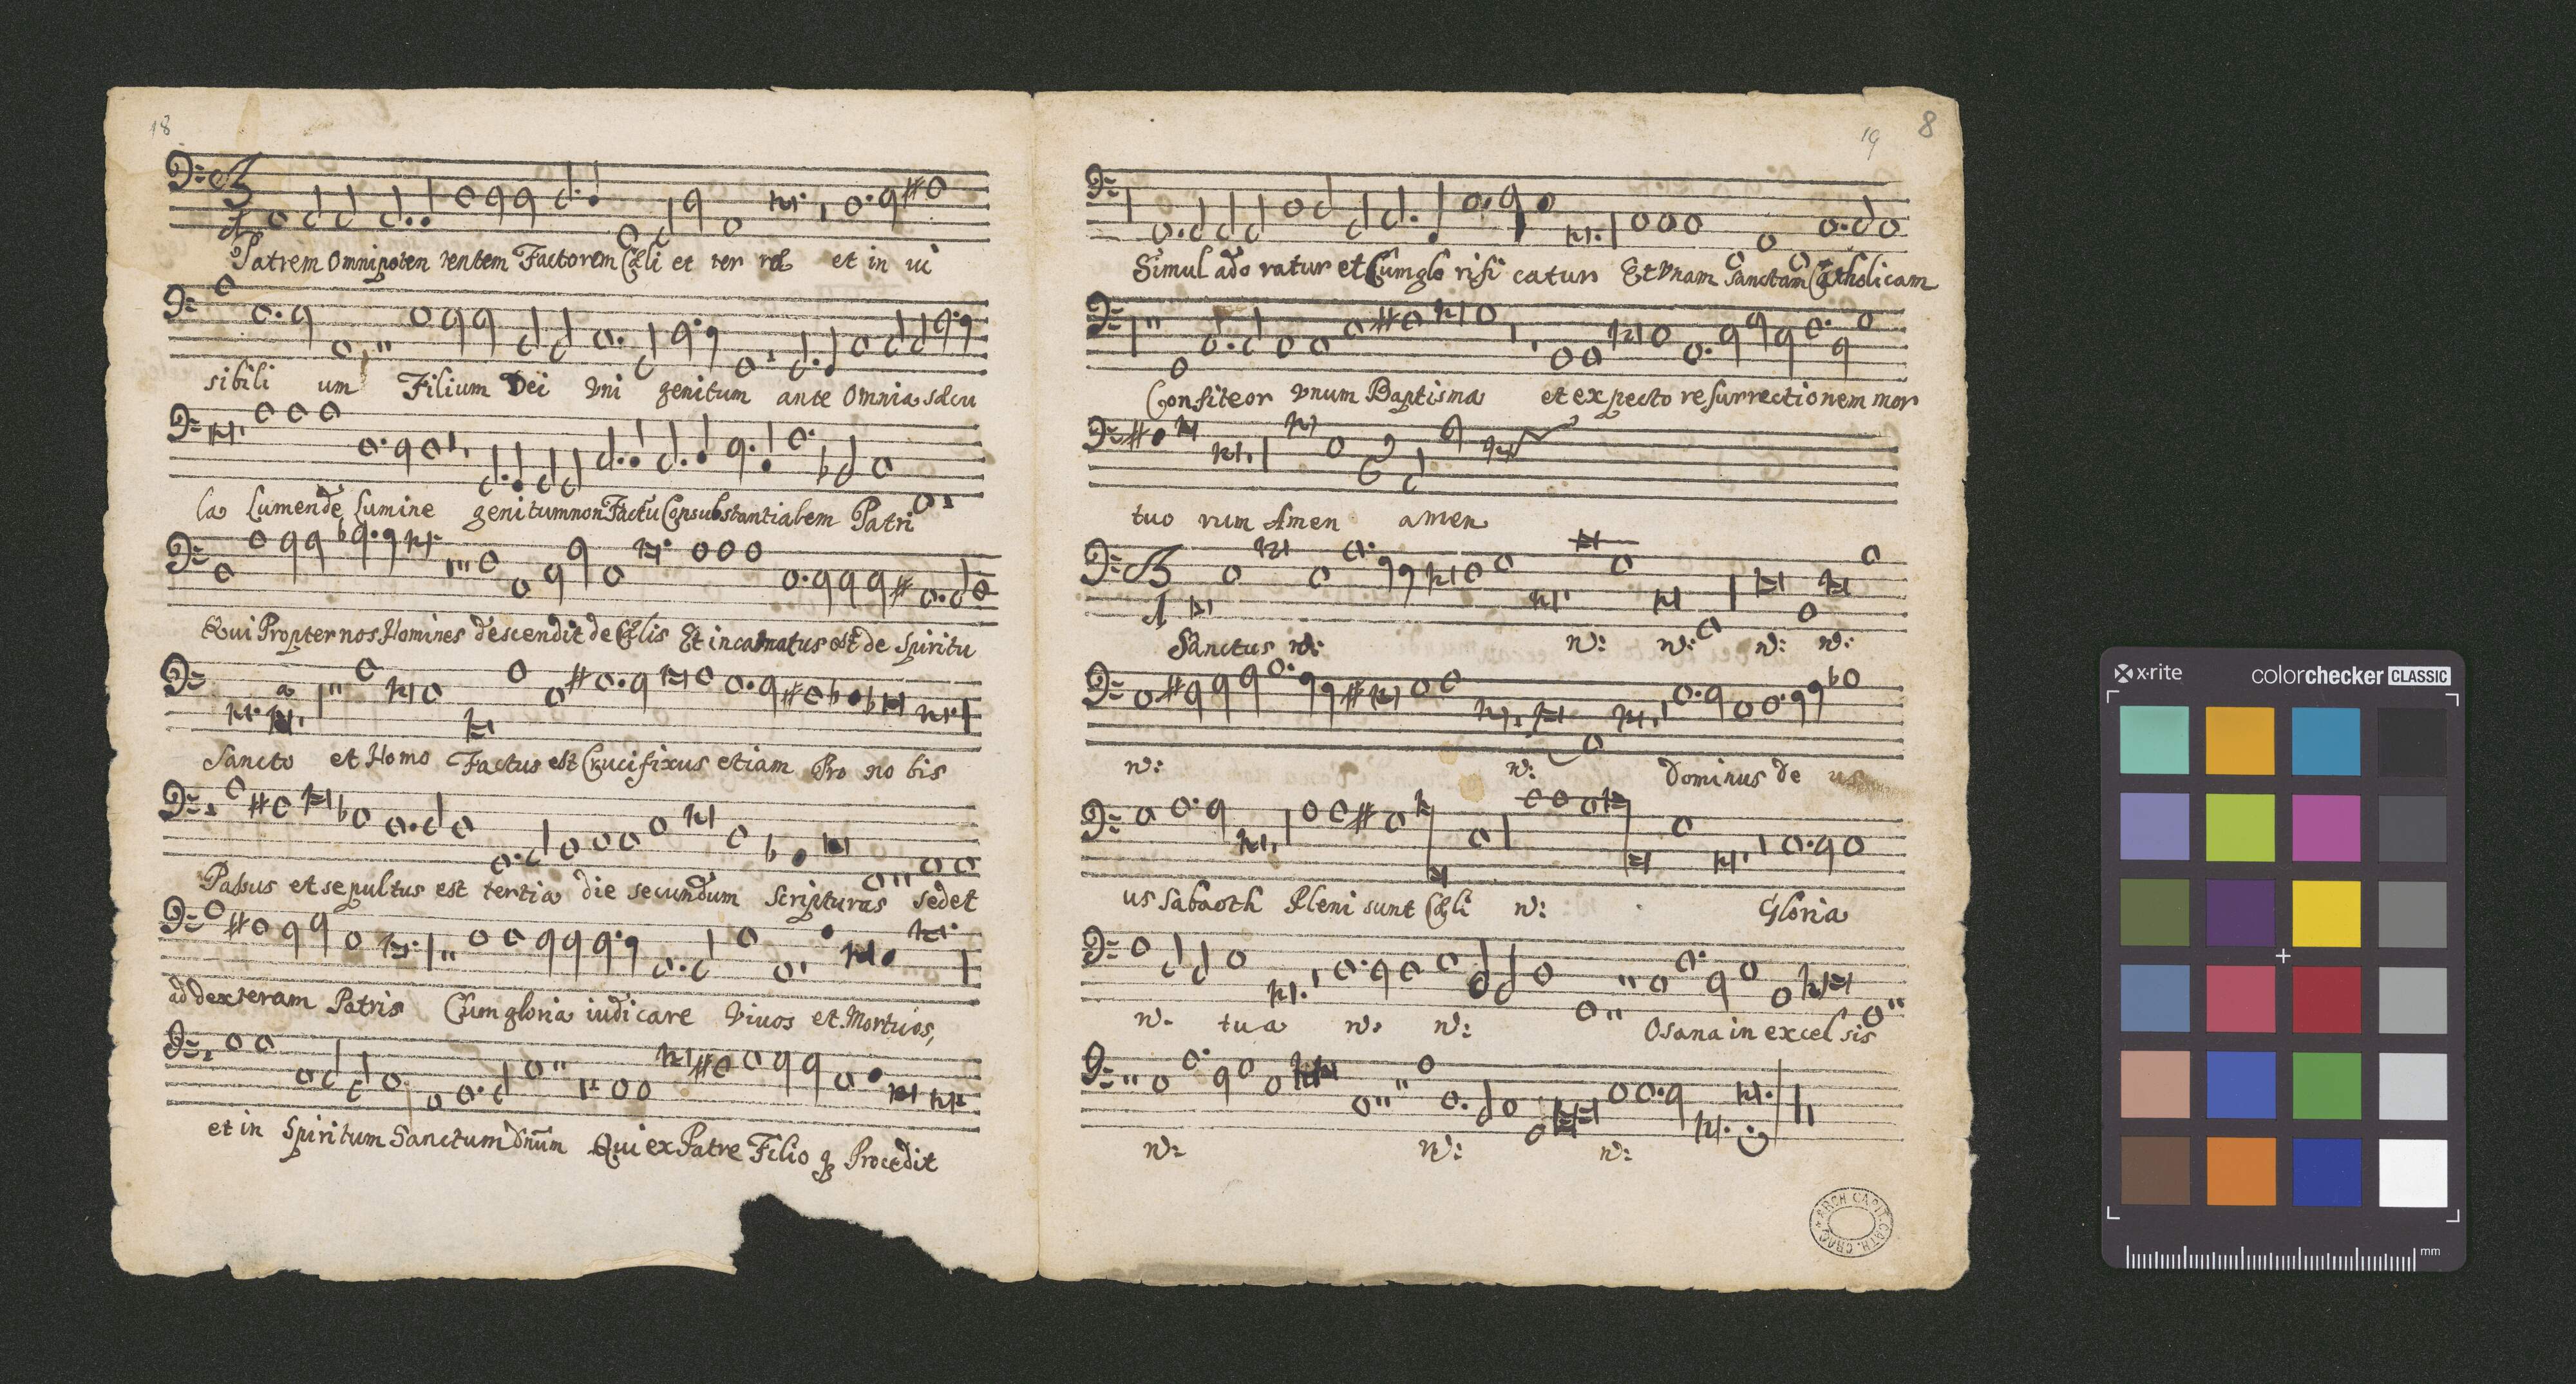 18
Patrem Omnipoten tentem Factorem Cæli et ter ræ et in ui
sibili um Filium Dei Vni genitum ante Omnia sæcu
la Lumende Lumine genitumnon Factũ Consubstantialem Patri
Qui Propter nos Homines descendit de Cælis Et incarnatus est de Spiritu
Sancto et Homo Factus est Crucifixus etiam Pro no bis
Passus et sepultus est tertia die secundum Scripturas sedet
ad dexteram Patris Cum gloria iudicare Viuos et Mortuos,
et in Spiritum Sanctum Dnūm Qui ex Patre Filio q Procedit
19
8
Simul ado ratur et Cumglo rifi catur Et Vnam Sanctam Catholicam
Confiteor Vnum Baptisma et expecto resurrectionem mor
tuo rum Amen amen
Sanctus n: n: n: n: n:
n: n: Dominus De us
us Sabaoth Pleni sunt Cæli n: Gloria
n. tua n. n: Osana in excel sis
n: n: n:
ARCH CAPIT. CATH. CRAC
x-rite
colorchecker CLASSIC
mm